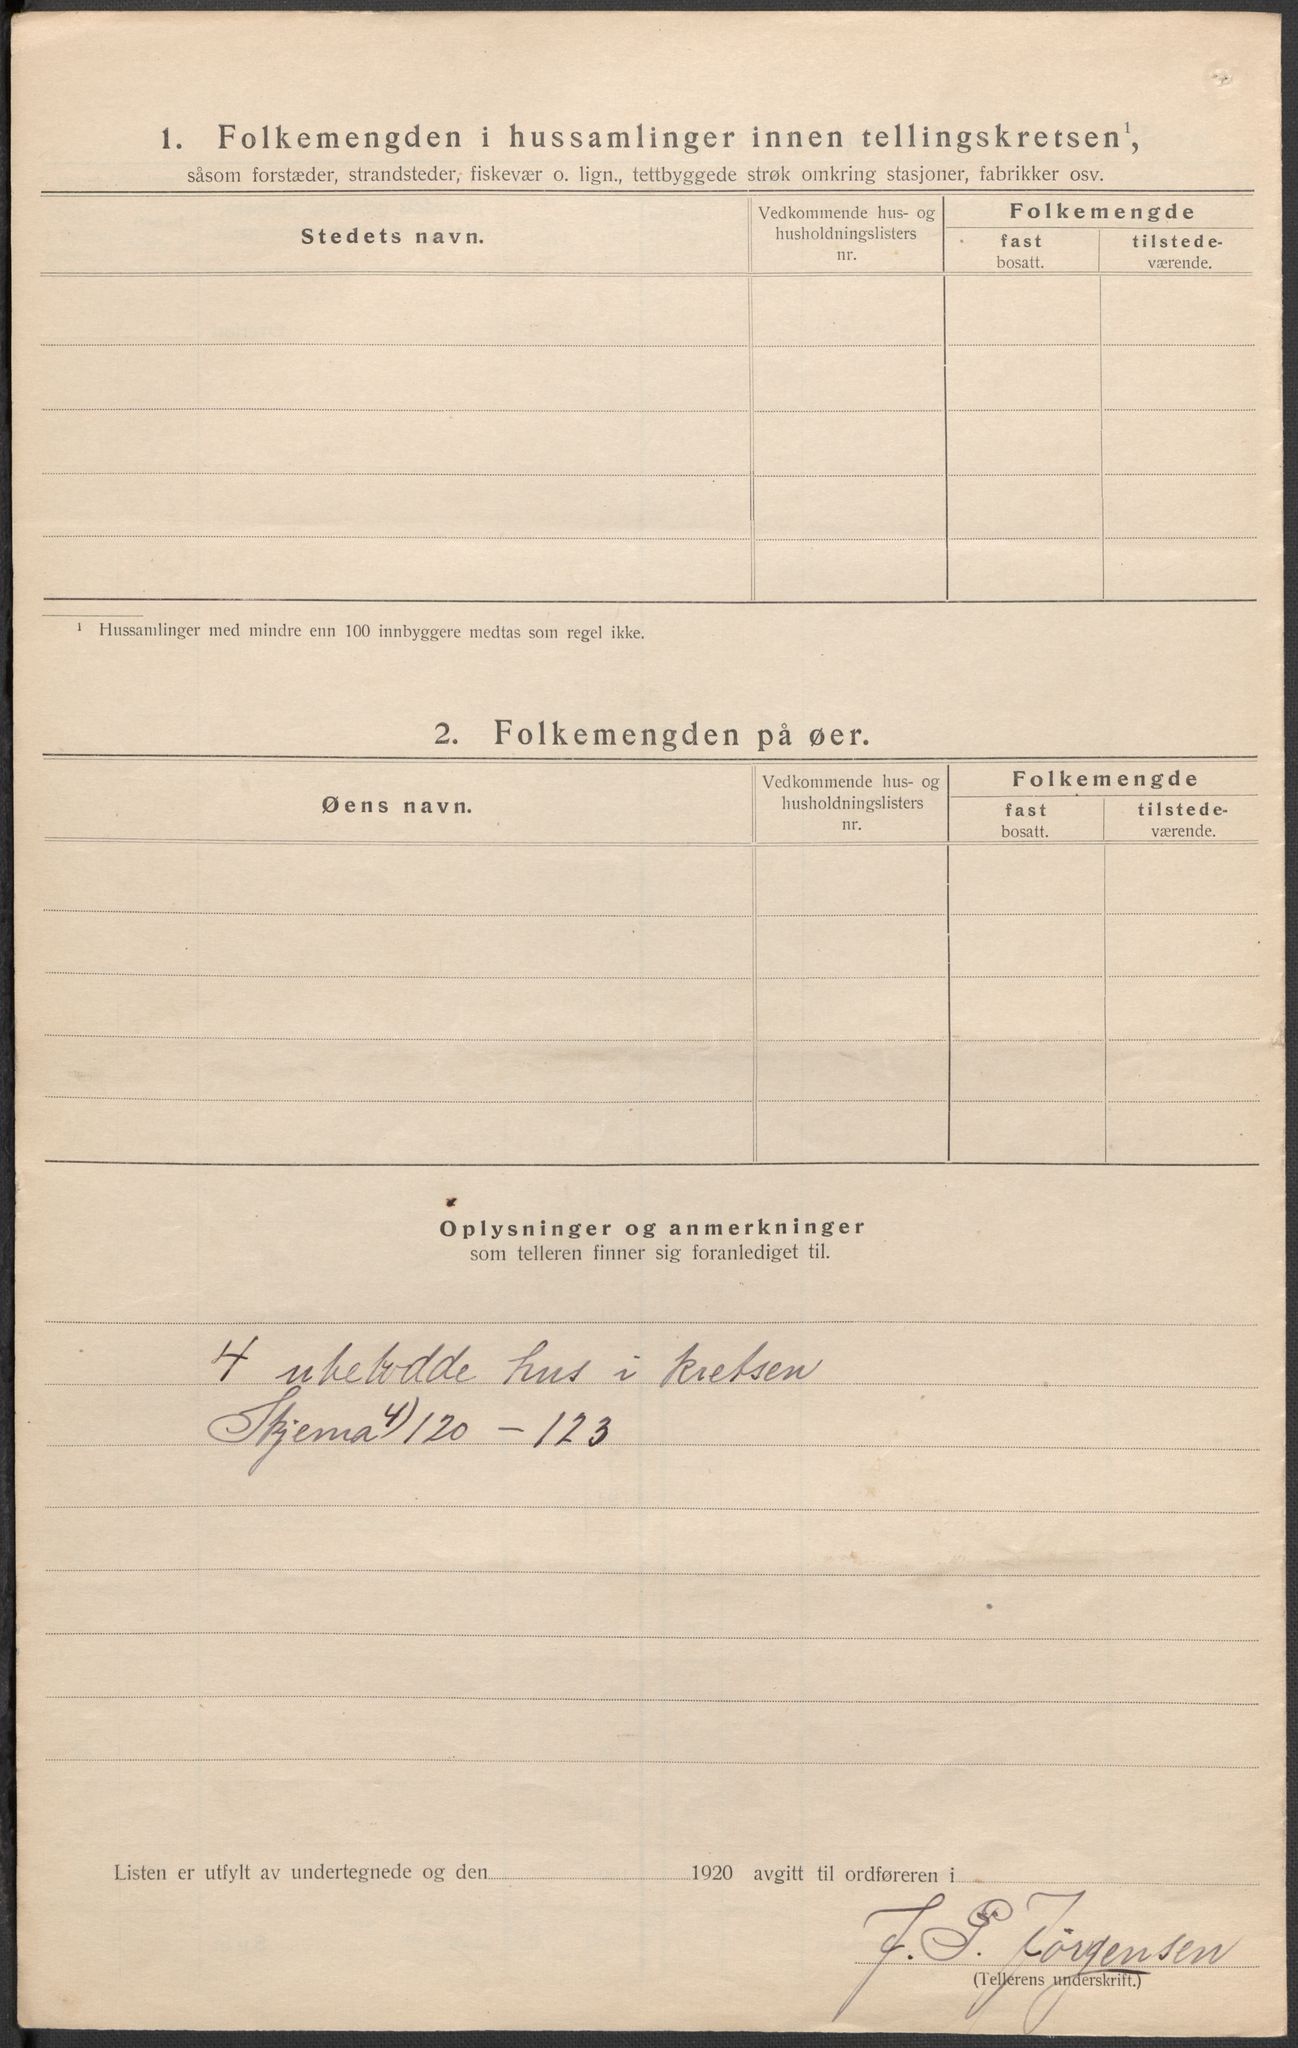 1. Folkemengden i hussamlinger innen tellingskretsen¹,
såsom forstæder, strandsteder, fiskevær o. lign., tettbyggede strøk omkring stasjoner, fabrikker osv.
Stedets navn.
Vedkommende hus- og
husholdningslisters
nr.
Folkemengde
fast
bosatt.
tilstede-
værende.
¹ Hussamlinger med mindre enn 100 innbyggere medtas som regel ikke.
2. Folkemengden på øer.
Øens navn.
Vedkommende hus- og
husholdningslisters
nr.
Folkemengde
fast
bosatt.
tilstede-
værende.
Oplysninger og anmerkninger
som telleren finner sig foranlediget til.
4 ubebodde hus i kretsen
Skjema 4) 120 – 123
Listen er utfylt av undertegnede og den 1920 avgitt til ordføreren i
J. P. Jørgensen
(Tellerens underskrift.)